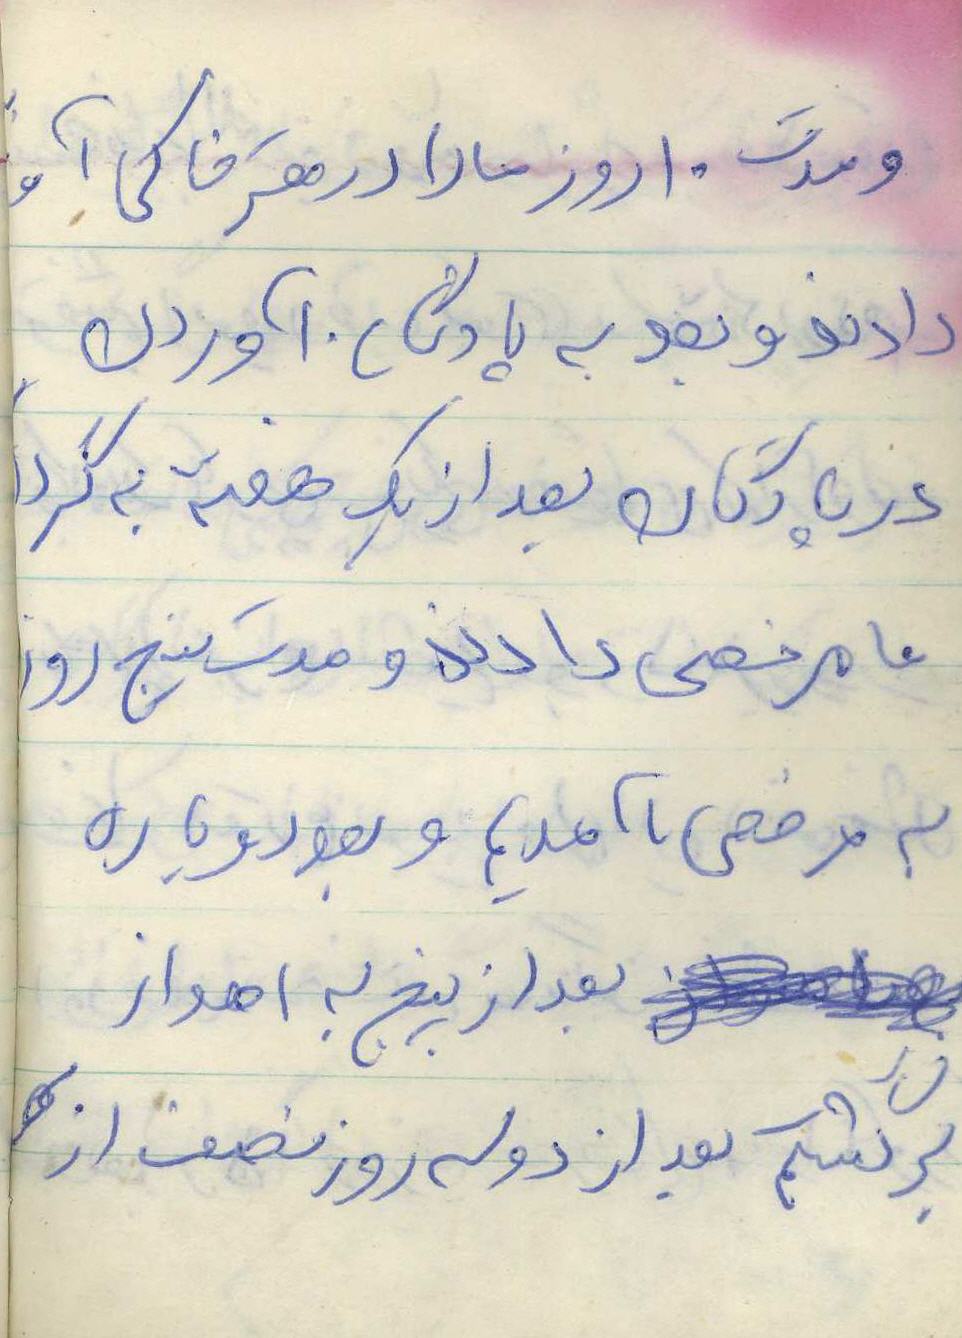 و مدت ۱۰ روز ما را در مقر خاکی آ
دادند و بعد به پادگان آوردن
در پادگان بعد از یک هفته به گردان
ما مرخصی دادند و مدت پنج روز
به مرخصی آمدیم و بعد دوباره
بعد از پنج به اهواز
برگشتیم بعد از دو سه روز نصف از